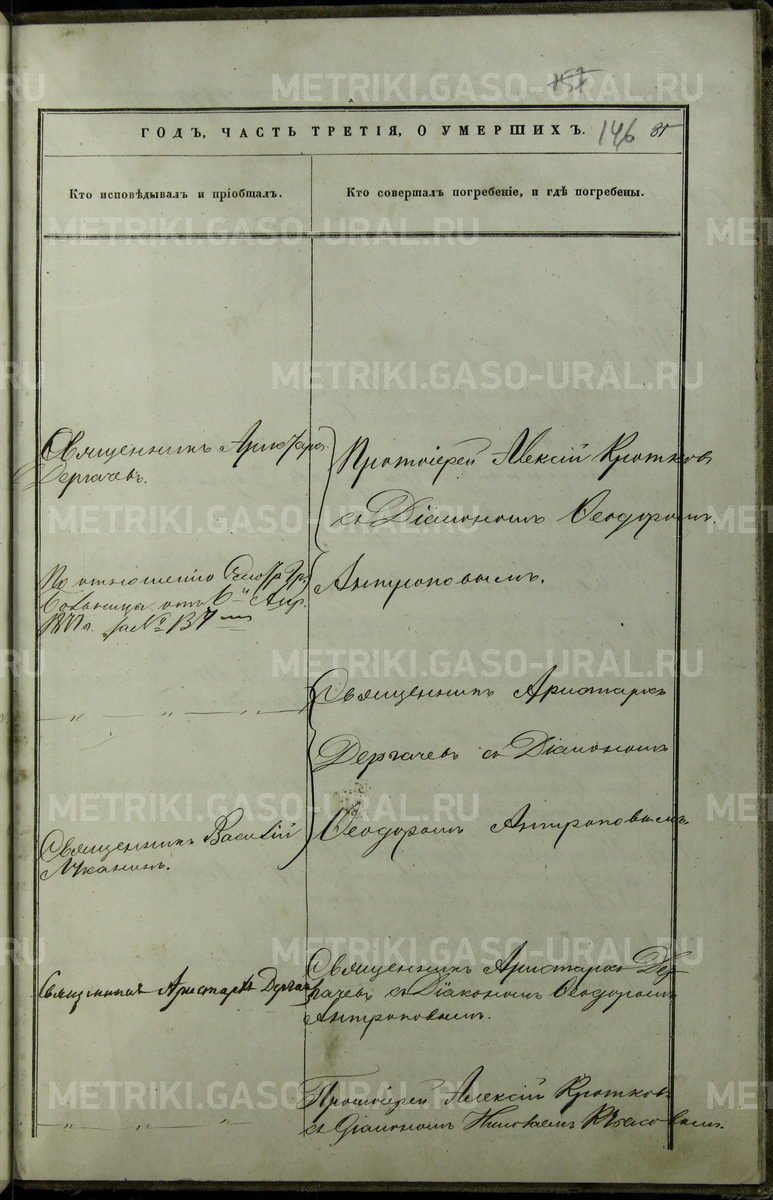 157
ГОДЪ, ЧАСТЬ ТРЕТІЯ, О УМЕРШИХЪ. 146
Кто исповѣдывалъ и пріобщалъ.
Кто совершалъ погребеніе, и гдѣ погребены.
Священникъ Аристархъ
Дергачевъ.
Протоіерей Алексій Кротковъ
съ Діакономъ Ѳеодоромъ
Антроповымъ.
По отношенію
больницы отъ 6й Апр.
1877 г. за № 137
Священникъ Аристархъ
Дергачевъ съ Діакономъ
Ѳеодоромъ Антроповымъ
Священникъ Василій
Лучанинъ.
Священникъ Аристархъ Дергачевъ
Священникъ Аристархъ Дер-
гачевъ съ Діакономъ Ѳеодоромъ
Антроповымъ.
Протоіерей Алексій Кротковъ
съ Діакономъ Николаемъ
METRIKI.GASO-URAL.RU